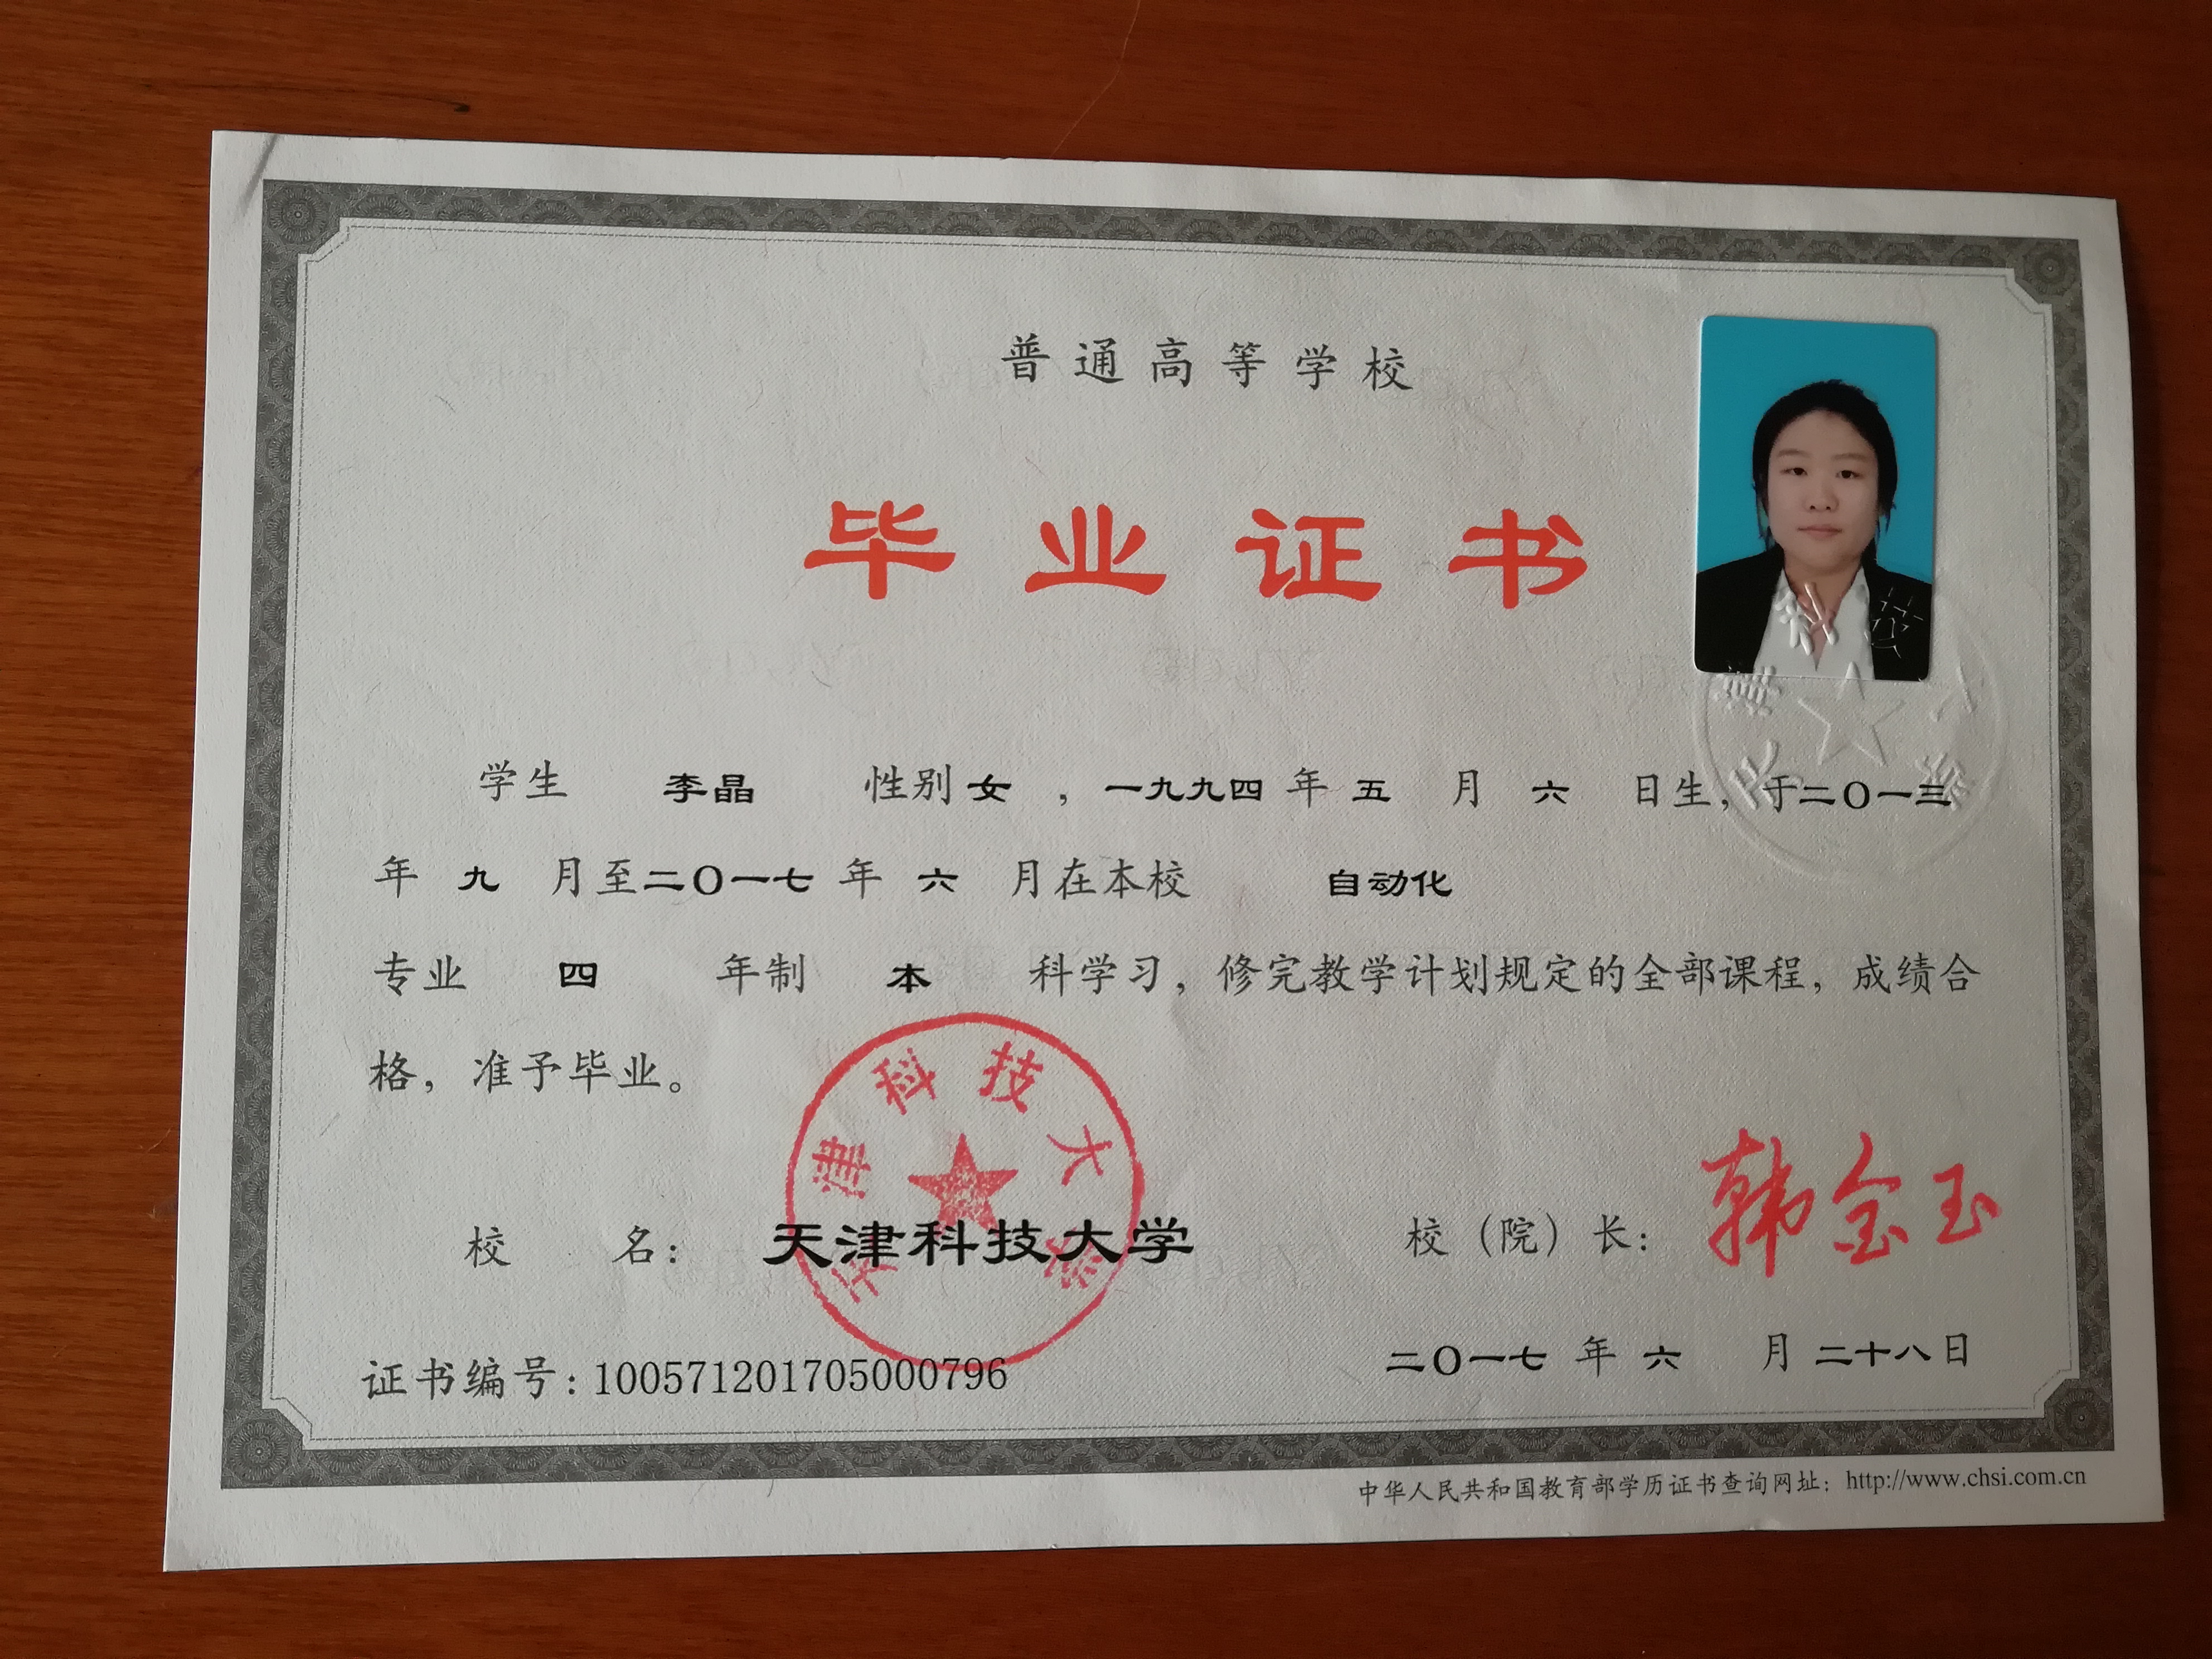 普通高等学校
毕业证书
学生 李晶 性别 女 ，一九九四 年 五 月 六 日生，于二〇一三
年 九 月至二〇一七 年 六 月在本校 自动化
专业 四 年制 本 科学习，修完教学计划规定的全部课程，成绩合
格，准予毕业。
天津科技大学
校 名： 天津科技大学 校（院）长： 韩金玉
证书编号：100571201705000796 二〇一七 年 六 月 二十八日
中华人民共和国教育部学历证书查询网址：http://www.chsi.com.cn